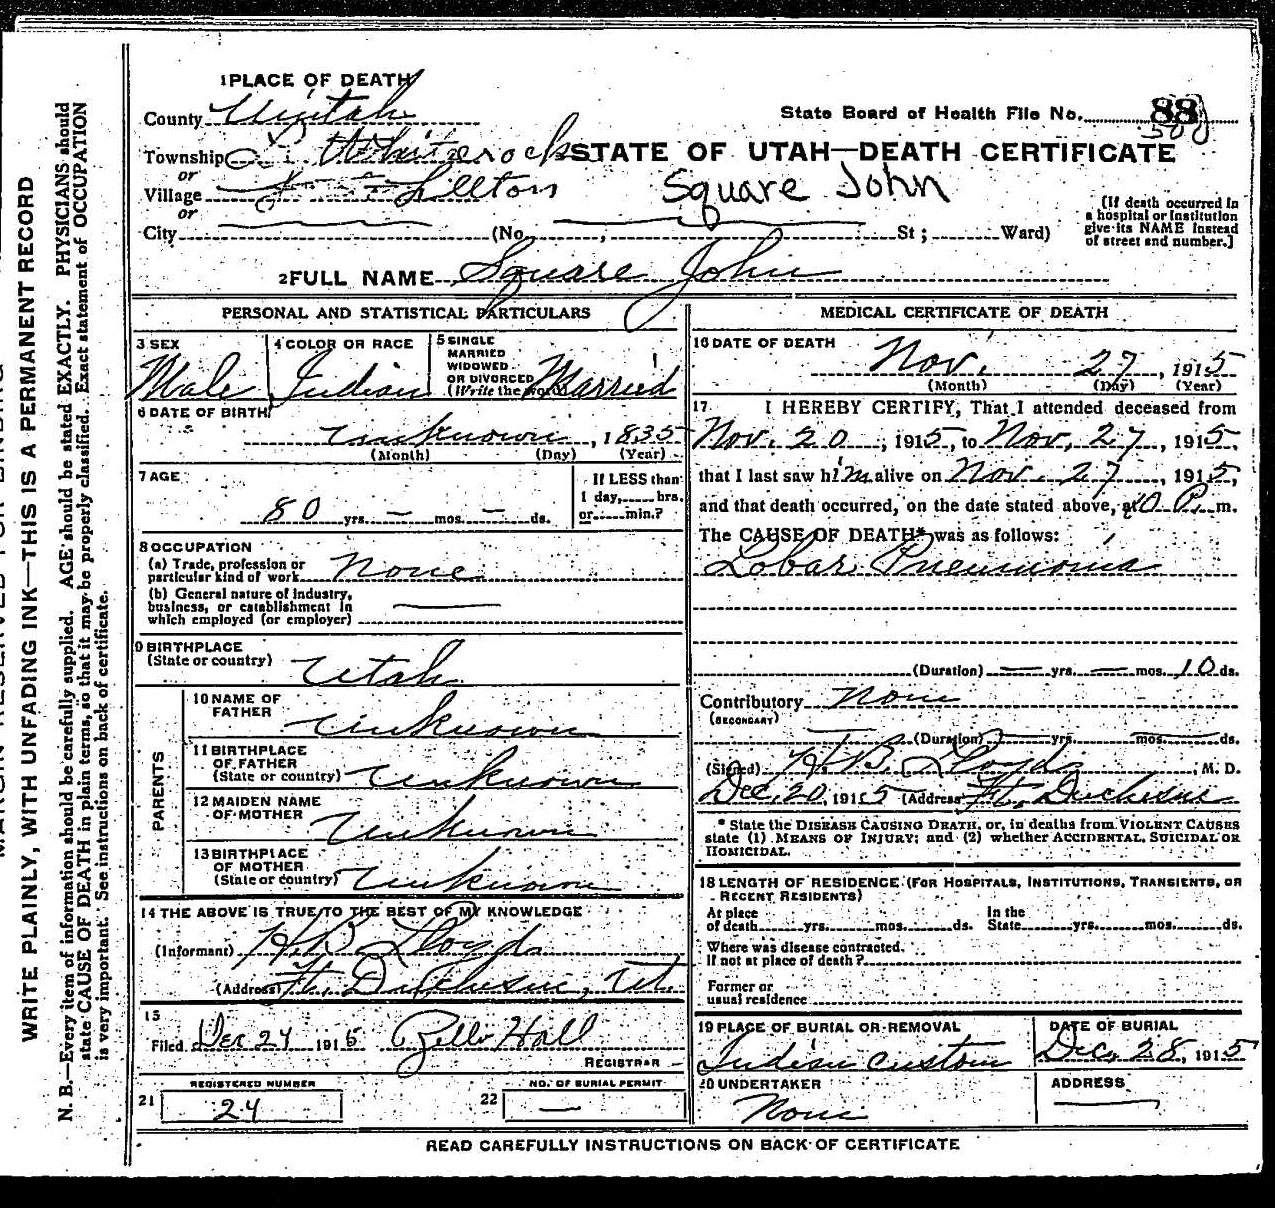 1 PLACE OF DEATH
County Uintah
State Board of Health File No. 88
Township Whiterocks
STATE OF UTAH—DEATH CERTIFICATE
or
Village
Square John
or
City (No. , St ; Ward)
[If death occurred in a hospital or institution give its NAME instead of street and number.]
2 FULL NAME Square John
PERSONAL AND STATISTICAL PARTICULARS
3 SEX
Male
4 COLOR OR RACE
Indian
5 SINGLE
MARRIED
WIDOWED
OR DIVORCED
(Write the word) Married
6 DATE OF BIRTH
unknown, 1835
(Month) (Day) (Year)
7 AGE
80 yrs. — mos. — ds.
If LESS than
1 day, hrs.
or min.?
8 OCCUPATION
(a) Trade, profession or
particular kind of work none
(b) General nature of industry,
business, or establishment in
which employed (or employer)
9 BIRTHPLACE
(State or country) Utah
PARENTS
10 NAME OF
FATHER unknown
11 BIRTHPLACE
OF FATHER
(State or country) unknown
12 MAIDEN NAME
OF MOTHER unknown
13 BIRTHPLACE
OF MOTHER
(State or country) unknown
14 THE ABOVE IS TRUE TO THE BEST OF MY KNOWLEDGE
(Informant) H.B. Lloyd
(Address) Ft. Duchesne, Ut.
15
Filed Dec 24 1915 Hall
REGISTRAR
REGISTERED NUMBER
21 24
NO. OF BURIAL PERMIT
22 —
MEDICAL CERTIFICATE OF DEATH
16 DATE OF DEATH
Nov. 27, 1915
(Month) (Day) (Year)
17 I HEREBY CERTIFY, That I attended deceased from
Nov. 20, 1915, to Nov. 27, 1915,
that I last saw him alive on Nov. 27, 1915,
and that death occurred, on the date stated above, at 10 P. m.
The CAUSE OF DEATH* was as follows:
Lobar Pneumonia
(Duration) — yrs. — mos. 10 ds.
Contributory None
(SECONDARY)
(Duration) — yrs. — mos. — ds.
(Signed) H.B. Lloyd, M. D.
Dec. 20, 1915 (Address) Ft. Duchesne
* State the DISEASE CAUSING DEATH, or, in deaths from VIOLENT CAUSES
state (1) MEANS OF INJURY; and (2) whether ACCIDENTAL, SUICIDAL OR
HOMICIDAL.
18 LENGTH OF RESIDENCE (FOR HOSPITALS, INSTITUTIONS, TRANSIENTS, OR
RECENT RESIDENTS)
At place
of death yrs. mos. ds.
In the
State yrs. mos. ds.
Where was disease contracted.
If not at place of death?
Former or
usual residence
19 PLACE OF BURIAL OR REMOVAL
Indian custom
DATE OF BURIAL
Dec. 28, 1915
20 UNDERTAKER
None
ADDRESS
READ CAREFULLY INSTRUCTIONS ON BACK OF CERTIFICATE
WRITE PLAINLY, WITH UNFADING INK—THIS IS A PERMANENT RECORD
N. B.—Every item of information should be carefully supplied. AGE should be stated EXACTLY. PHYSICIANS should
state CAUSE OF DEATH in plain terms, so that it may be properly classified. Exact statement of OCCUPATION
is very important. See instructions on back of certificate.